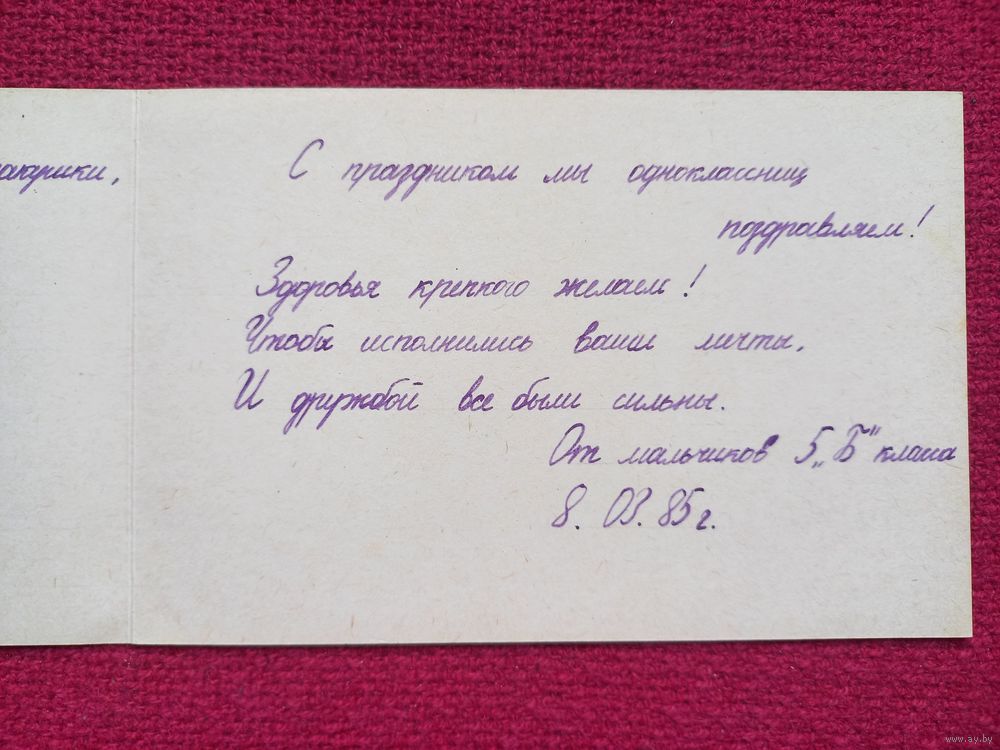 С праздником мы одноклассниц
поздравляем!
Здоровья крепкого желаем!
Чтобы исполнились ваши мечты,
И дружбой все были сильны.
От мальчиков 5 „Б“ класса
8. 03. 85 г.
www.ay.by